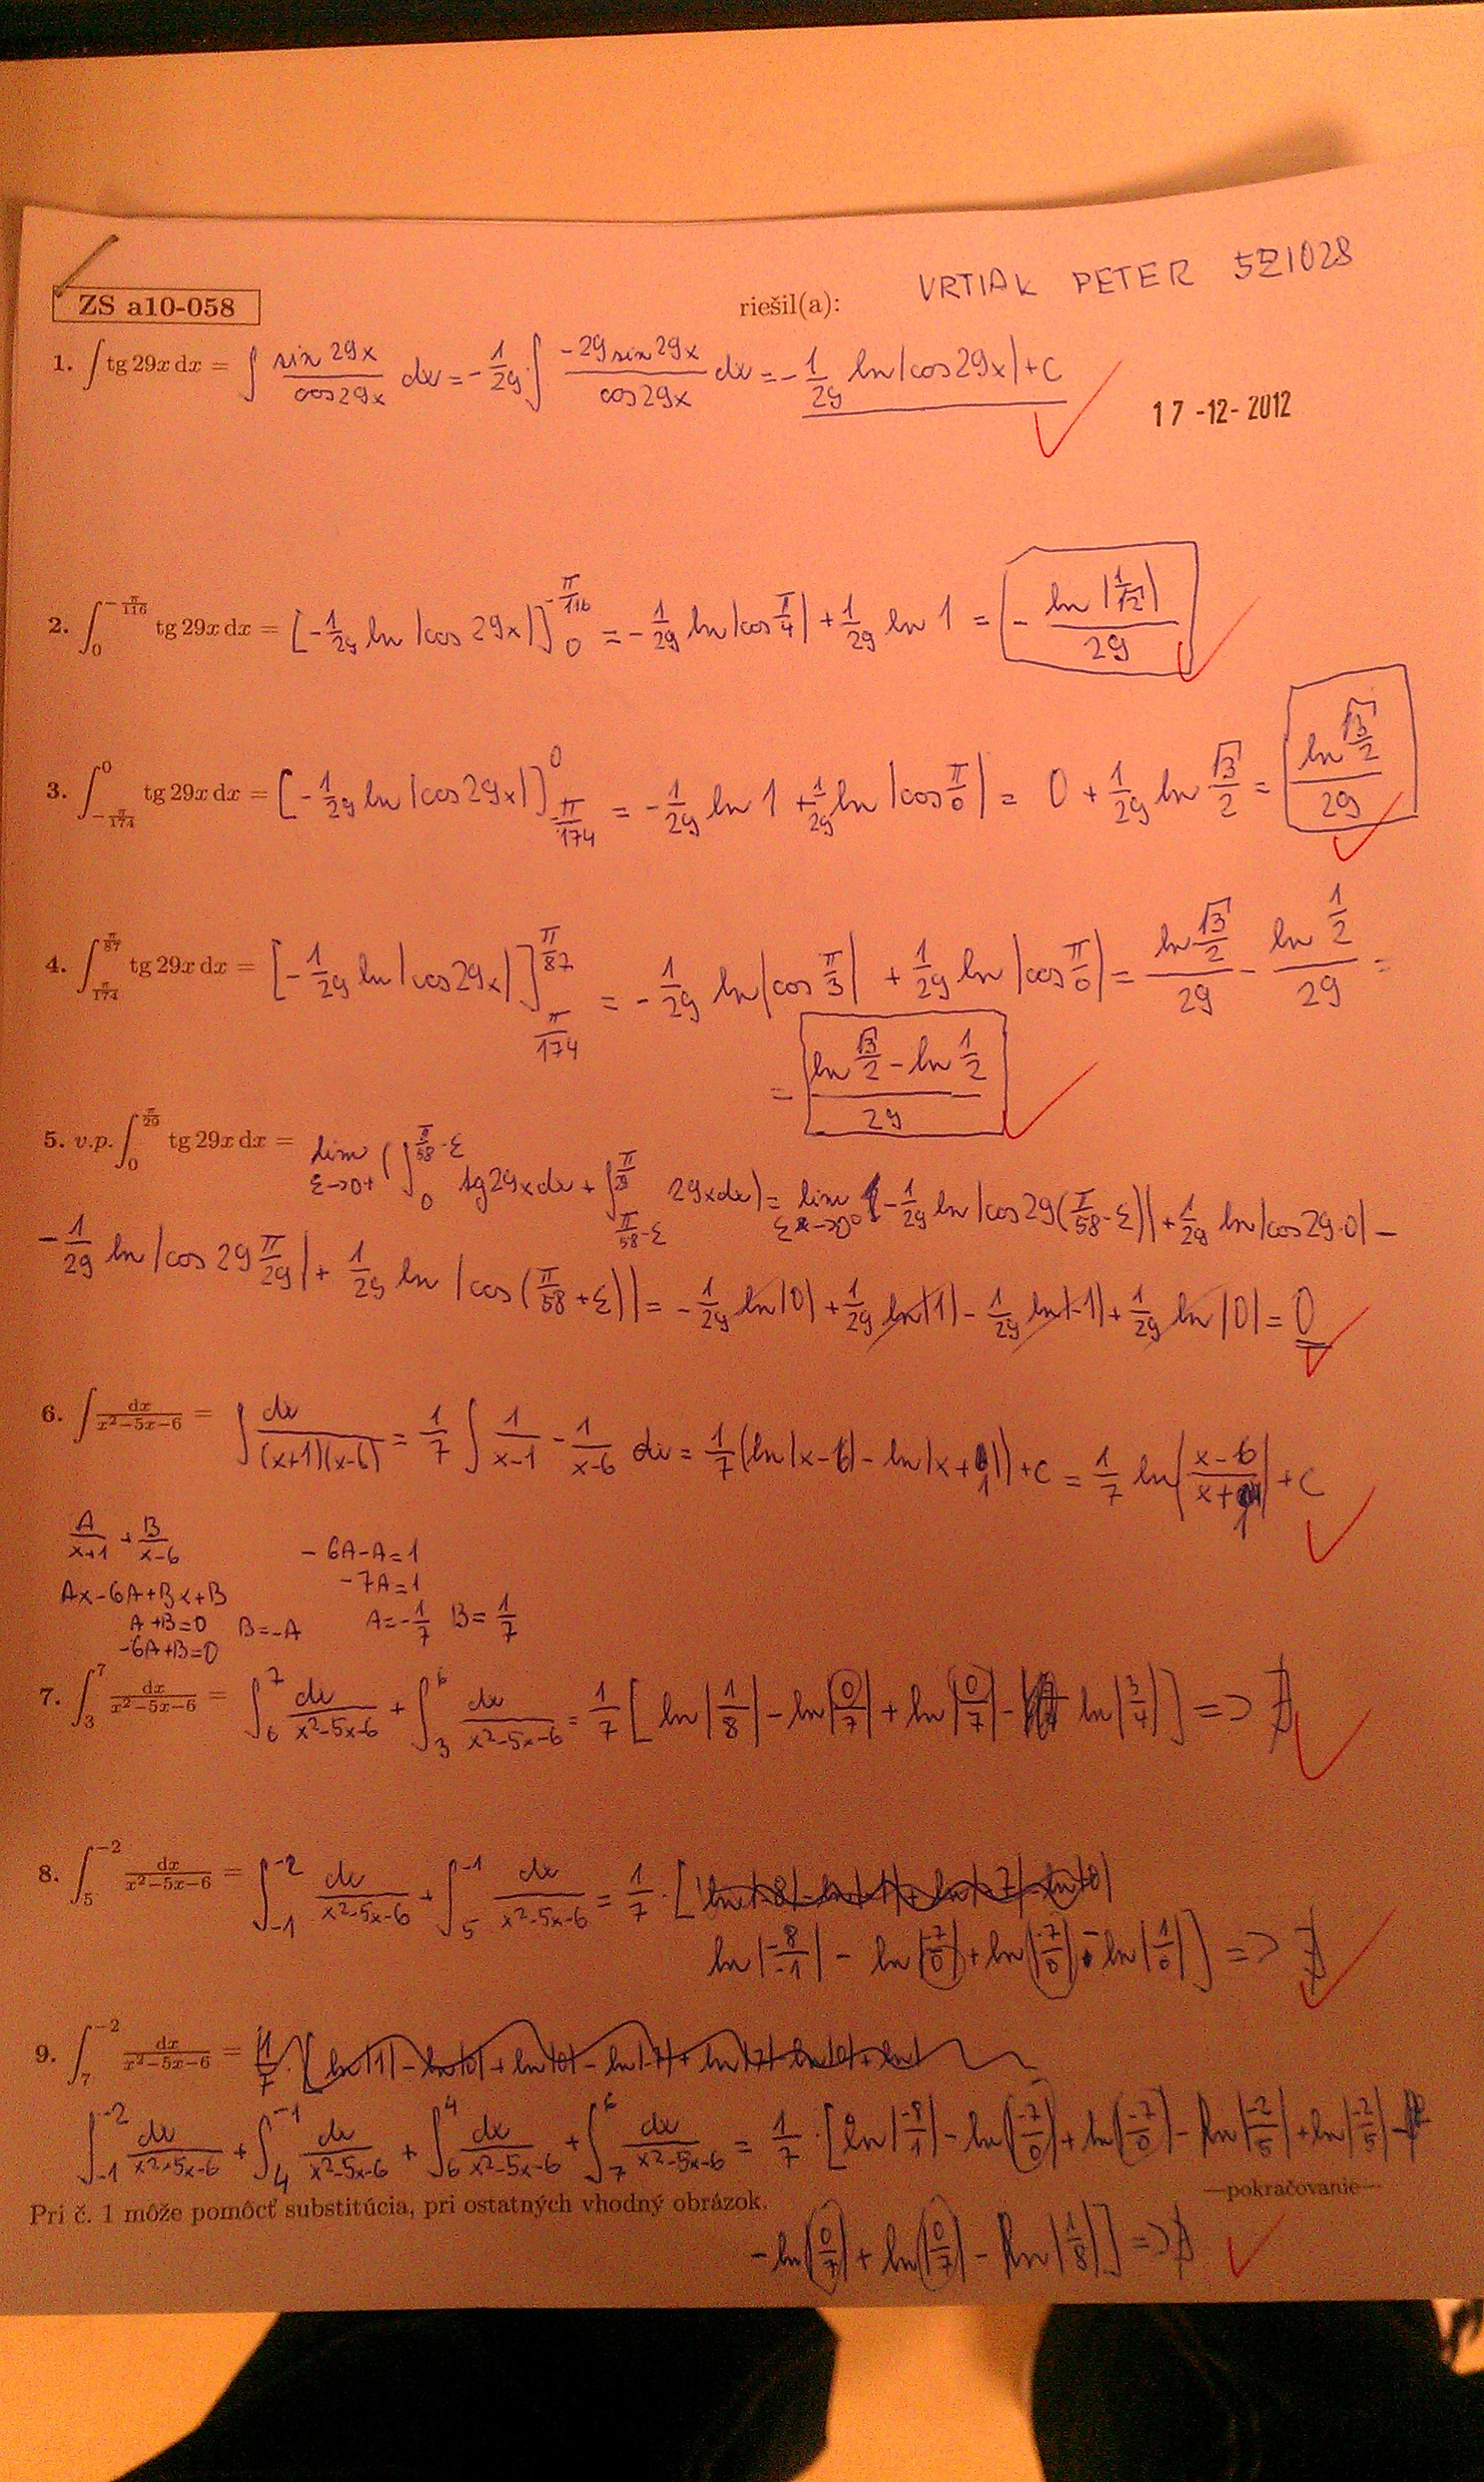 VRTIAK PETER 5Z1028
ZS a10-058 riešil(a):
1. ∫ tg 29x dx = ∫ sin 29x / cos 29x dx = -1/29 ∫ -29 sin 29x / cos 29x dx = -1/29 ln|cos 29x| + C
17-12-2012
2. ∫_0^{-π/116} tg 29x dx = [-1/29 ln |cos 29x|]_0^{-π/116} = -1/29 ln|cos π/4| + 1/29 ln 1 = - ln|1/√2| / 29
3. ∫_{-π/174}^0 tg 29x dx = [-1/29 ln |cos 29x|]_{-π/174}^0 = -1/29 ln 1 + 1/29 ln |cos π/6| = 0 + 1/29 ln √3/2 = ln √3/2 / 29
4. ∫_{π/174}^{π/87} tg 29x dx = [-1/29 ln |cos 29x|]_{π/174}^{π/87} = -1/29 ln|cos π/3| + 1/29 ln |cos π/6| = ln √3/2 / 29 - ln 1/2 / 29 =
= (ln √3/2 - ln 1/2) / 29
5. v.p. ∫_0^{π/29} tg 29x dx = lim_{ε→0+} (∫_0^{π/58-ε} tg 29x dx + ∫_{π/58-ε}^{π/29} 29x dx) = lim_{ε→0+} (-1/29 ln |cos 29(π/58-ε)| + 1/29 ln|cos 29·0| -
-1/29 ln |cos 29 π/29| + 1/29 ln |cos(π/58+ε)| = -1/29 ln|0| + 1/29 ln|1| - 1/29 ln|-1| + 1/29 ln |0| = 0
6. ∫ dx / x²-5x-6 = ∫ dx / (x+1)(x-6) = 1/7 ∫ 1/x-1 - 1/x-6 dx = 1/7 (ln|x-6| - ln|x+1|) + C = 1/7 ln|x-6 / x+1| + C
A/x+1 + B/x-6 -6A-A=1
-7A=1
Ax-6A+Bx+B
A+B=0 B=-A A=-1/7 B=1/7
-6A+B=0
7. ∫_3^7 dx / x²-5x-6 = ∫_6^7 dx / x²-5x-6 + ∫_3^6 dx / x²-5x-6 = 1/7 [ln|1/8| - ln|0/7| + ln|0/7| - ln|3/4|] => ∄
8. ∫_5^{-2} dx / x²-5x-6 = ∫_{-1}^{-2} dx / x²-5x-6 + ∫_5^{-1} dx / x²-5x-6 = 1/7 · [
ln|-8/-1| - ln|-7/0| + ln|-7/0| - ln|1/6|] => ∄
9. ∫_7^{-2} dx / x²-5x-6 =
∫_{-1}^{-2} dx / x²-5x-6 + ∫_4^{-1} dx / x²-5x-6 + ∫_6^4 dx / x²-5x-6 + ∫_7^6 dx / x²-5x-6 = 1/7 · [ln|-8/1| - ln|-7/0| + ln|-7/0| - ln|-2/5| + ln|-2/5| -
—pokračovanie—
Pri č. 1 môže pomôcť substitúcia, pri ostatných vhodný obrázok.
- ln|0/7| + ln|0/7| - ln|1/8|] => ∄